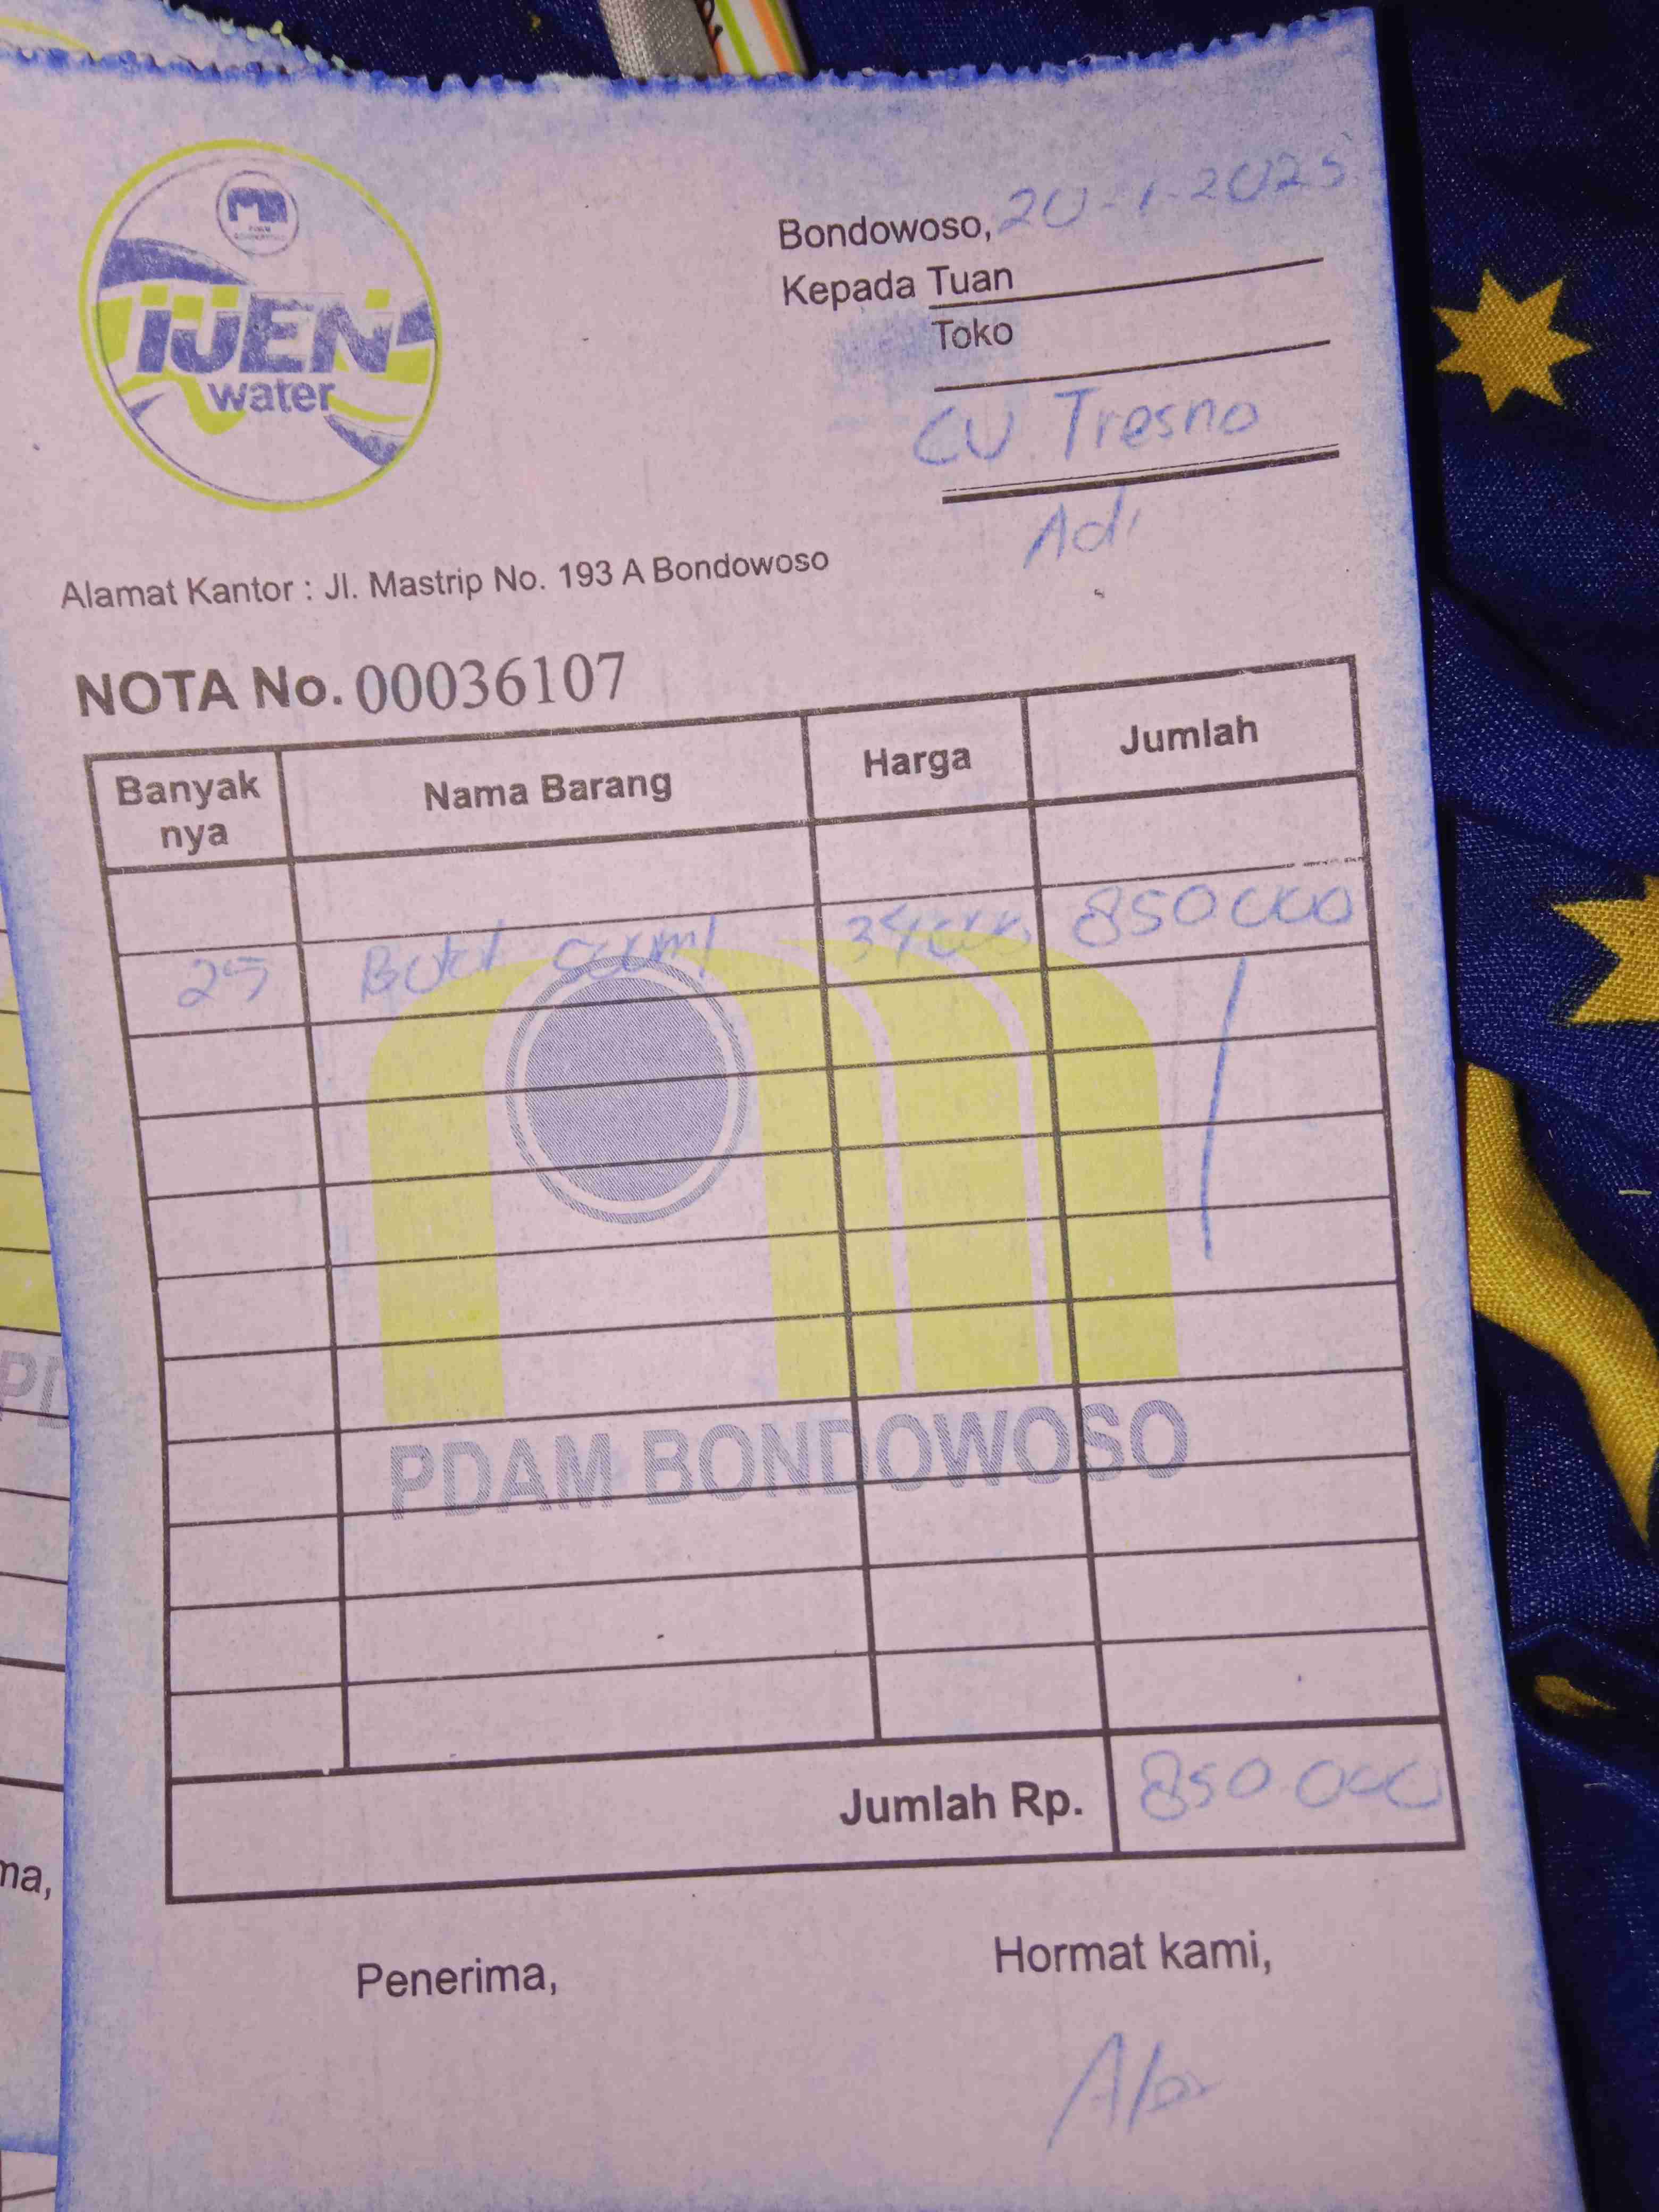 IJEN
water
Bondowoso, 20-1-2025
Kepada Tuan
Toko
CV Tresno
Adi
Alamat Kantor : Jl. Mastrip No. 193 A Bondowoso
NOTA No. 00036107
Banyak nya Nama Barang Harga Jumlah
25 Botol 500ml 34000 850000
PDAM BONDOWOSO
Jumlah Rp. 850 000
Penerima, Hormat kami,